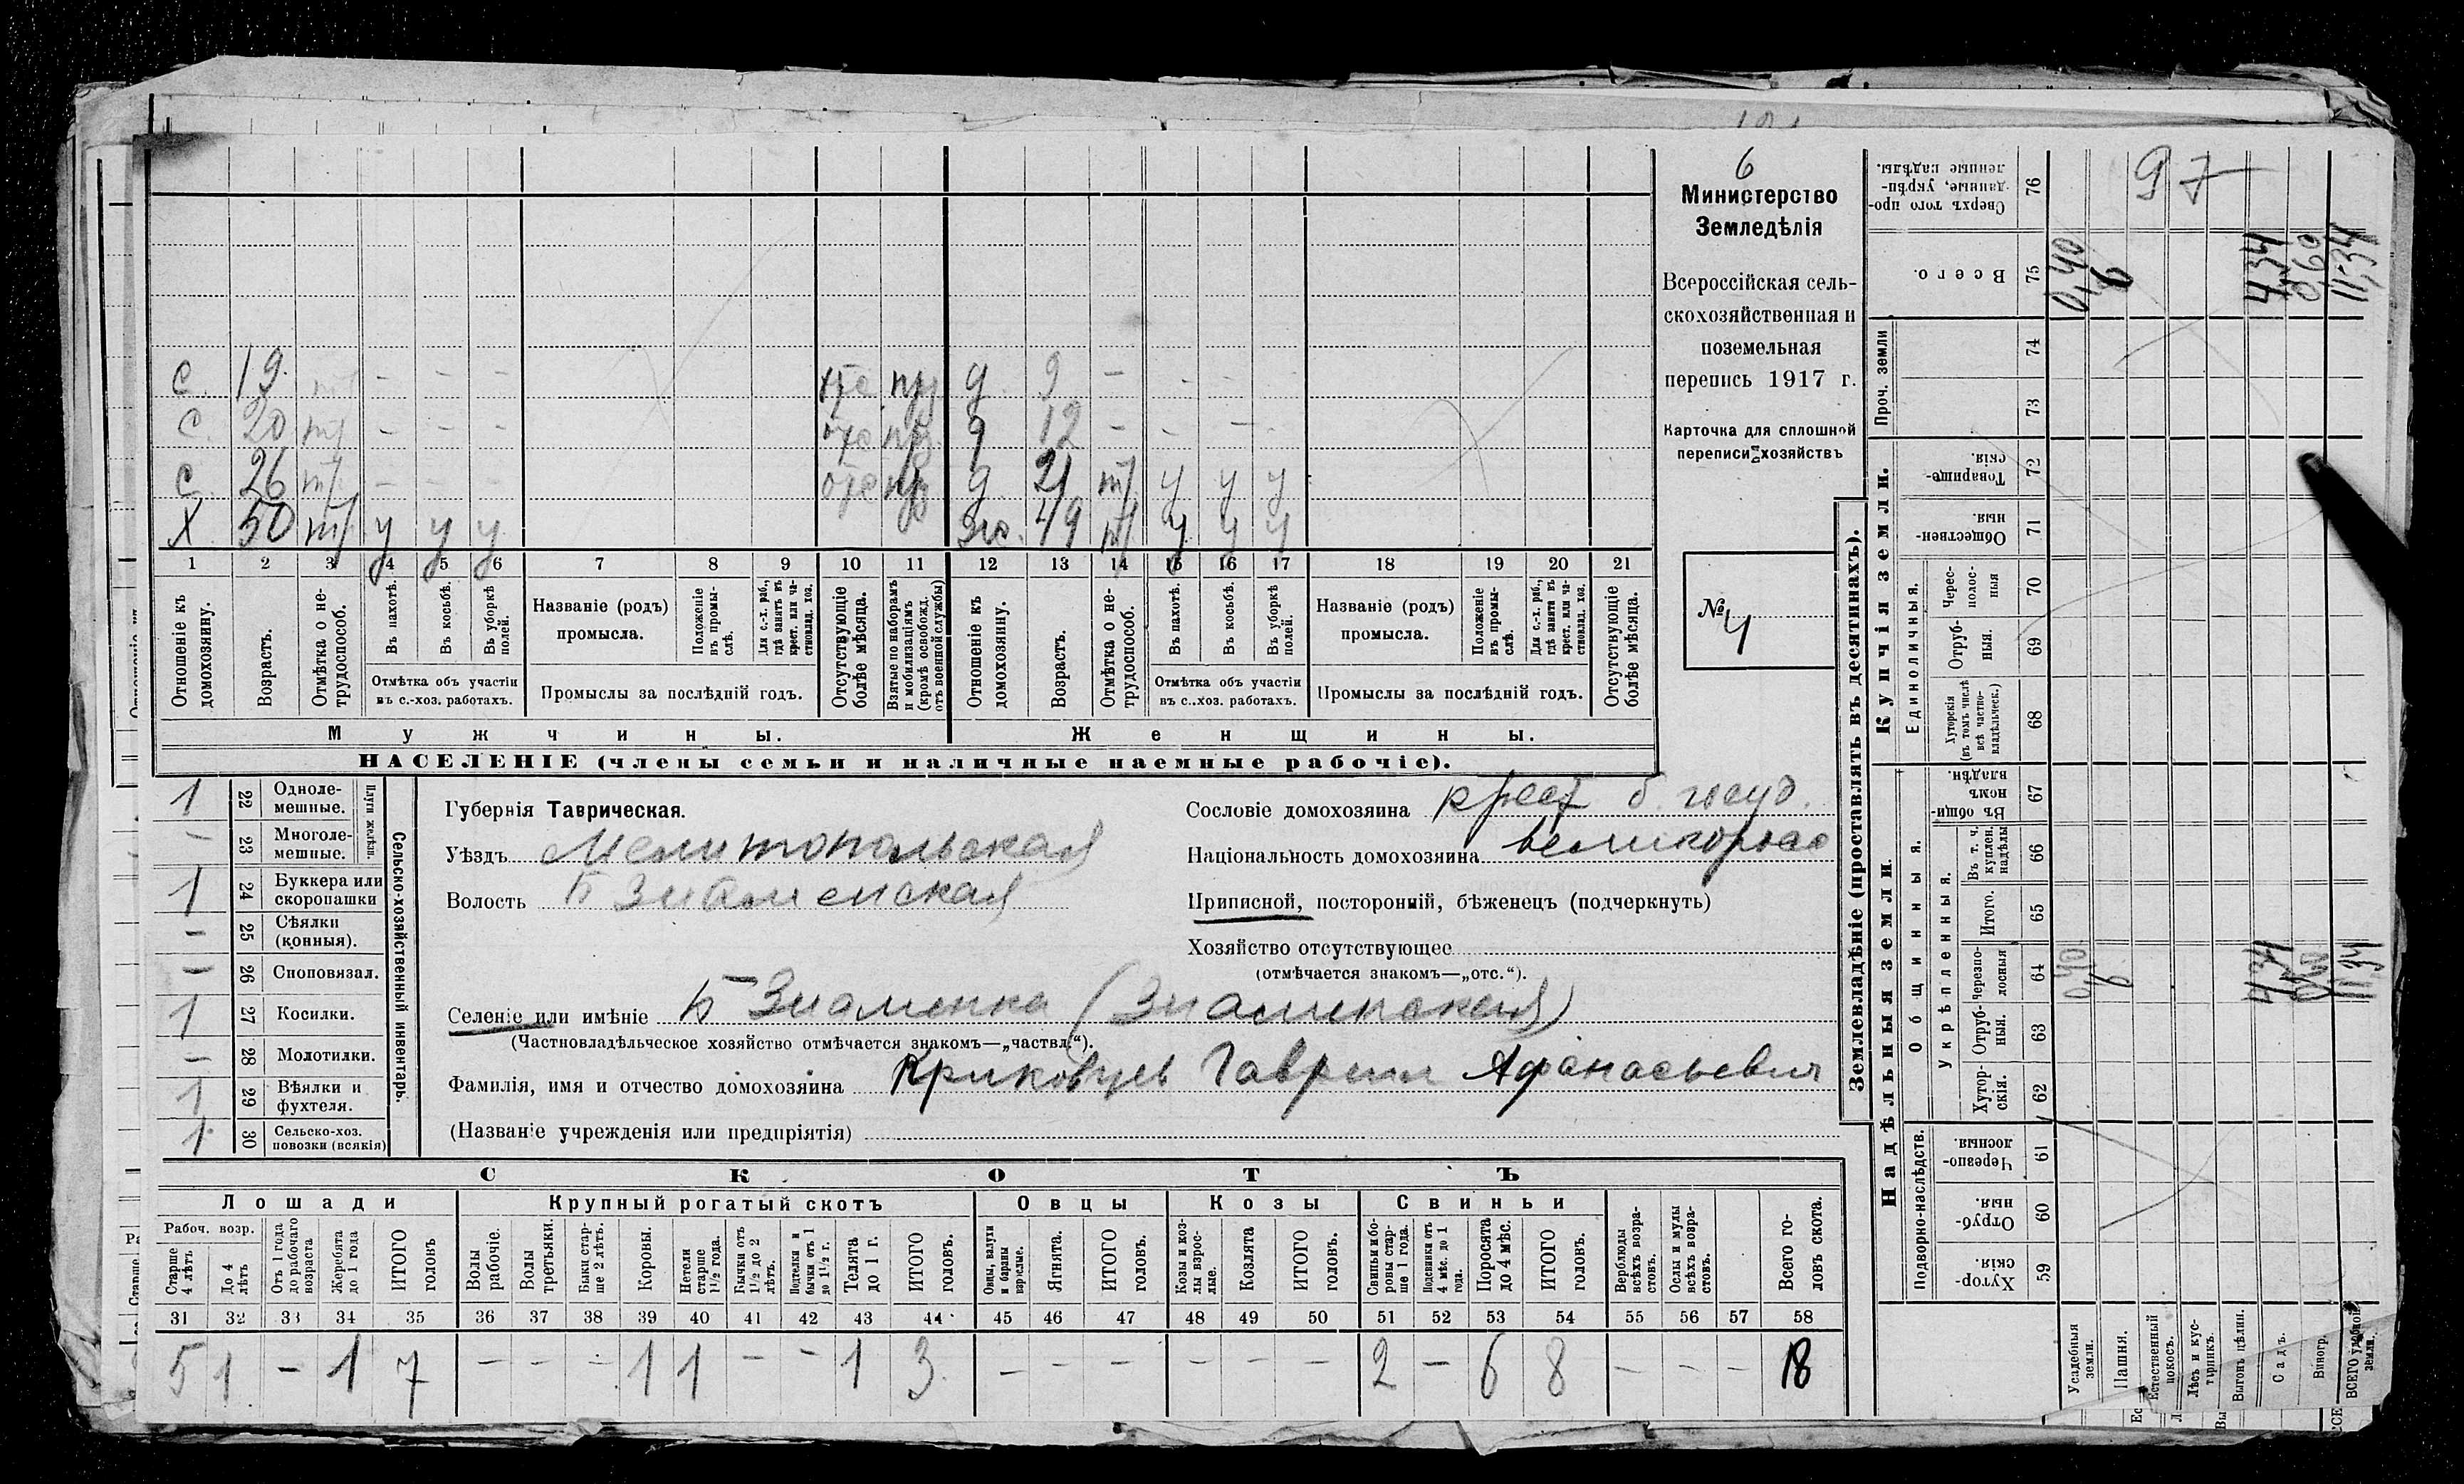 6
Министерство
Земледѣлія
Всероссійская сель-
скохозяйственная и
поземельная
перепись 1917 г.
Карточка для сплошной
переписи хозяйствъ
№ 4
с. 19. – – – отс. пр. д. 9 – – – –
с. 20 т/ – – – отс пр. д 12 – – – –
с. 26 т/ – – – отс пр д. 21 т/ у у у
х. 50 т/ у у у жо. 49 т/ у у у
1 2 3 4 5 6 7 8 9 10 11 12 13 14 15 16 17 18 19 20 21
Отношеніе къ домохозяину.
Возрастъ.
Отмѣтка о не-трудоспособ.
Въ пахотѣ.
Въ косьбѣ.
Въ уборкѣ полей.
Отмѣтка объ участіи
въ с.-хоз. работахъ.
Названіе (родъ)
промысла.
Положеніе въ промы-слѣ.
Для с.-х. раб., гдѣ занятъ въ крест. или ча-стновлад. хоз.
Промыслы за послѣдній годъ.
Отсутствующіе болѣе мѣсяца.
Взятые по наборамъ и мобилизаціямъ (кромѣ освобожд. отъ военной службы)
Отношеніе къ домохозяину.
Возрастъ.
Отмѣтка о не-трудоспособ.
Въ пахотѣ.
Въ косьбѣ.
Въ уборкѣ полей.
Отмѣтка объ участіи
въ с.-хоз. работахъ.
Названіе (родъ)
промысла.
Положеніе въ промы-слѣ.
Для с.-х. раб., гдѣ заняти въ крест. или ча-стновлад. хоз.
Промыслы за послѣдній годъ.
Отсутствующіе болѣе мѣсяца.
Мужчины. Женщины.
НАСЕЛЕНІЕ (члены семьи и наличные наемные рабочіе).
1 22 Одноле-мешные.
– 23 Многоле-мешные.
Плуги желѣзн.
1 24 Буккера или скоропашки
– 25 Сѣялки (конныя).
– 26 Сноповязал.
1 27 Косилки.
– 28 Молотилки.
1 29 Вѣялки и фухтеля.
1 30 Сельско-хоз. повозки (всякія)
Сельско-хозяйственный инвентарь.
Губернія Таврическая.
Уѣздъ Мелитопольская
Волость Б Знаменская
Сословіе домохозяина крест б. госуд.
Національность домохозяина великоросс
Приписной, посторонній, бѣженецъ (подчеркнуть)
Хозяйство отсутствующее
(отмѣчается знакомъ—„отс.“).
Селеніе или имѣніе Б Знаменка (Знаменская)
(Частновладѣльческое хозяйство отмѣчается знакомъ—„частвл.“).
Фамилія, имя и отчество домохозяина Криковцев Гавриил Афанасьевич
(Названіе учрежденія или предпріятія)
СКОТЪ
Лошади Крупный рогатый скотъ Овцы Козы Свиньи
Рабоч. возр.
Старше 4 лѣтъ
До 4 лѣтъ
Отъ 1 года до рабочаго возраста
Жеребята до 1 года
ИТОГО головъ
Волы рабочіе.
Волы третьяки.
Быки стар-ше 2 лѣтъ.
Коровы.
Нетели старше 1½ года.
Бычки отъ 1½ до 2 лѣтъ.
Подтелки и бычки отъ 1 до 1½ г.
Телята до 1 г.
ИТОГО головъ.
Овцы, валухи и бараны взрослые.
Ягнята.
ИТОГО головъ.
Козы и коз-лы взрос-лые.
Козлята
ИТОГО головъ.
Свиньи и бо-ровы стар-ше 1 года.
Подсвинки отъ 4 мѣс. до 1 года.
Поросята до 4 мѣс.
ИТОГО головъ.
Верблюды всѣхъ возра-стовъ.
Ослы и мулы всѣхъ возра-стовъ.
Всего го-ловъ скота.
31 32 33 34 35 36 37 38 39 40 41 42 43 44 45 46 47 48 49 50 51 52 53 54 55 56 57 58
5 1 – 1 7 – – – 1 1 – – 1 3 – – – – – – 2 – 6 8 – – – 18
Землевладѣніе (проставлять въ десятинахъ).
Надѣльныя земли. Купчія земли. Проч. земли
Подворно-наслѣдств.
Общинныя.
Укрѣпленныя.
Единоличныя.
Сверхъ того про-данные, укрѣп-ленные надѣлы. 76 97
Всего. 75 0,40 6 4,34 0,60 11,34
74
73
Товарище-скія. 72
Обществен-ныя. 71
Черес-полос-ныя 70
Отруб-ныя. 69
Хуторскія (въ томъ числѣ всѣ частно-владѣльческ.) 68
Въ общи-номъ владѣн. 67
Въ т. ч. куплен. надѣлы 66
Итого. 65
Черезпо-лосныя 64 0,40 6 4,34 11,34
Отруб-ныя. 63
Хутор-скія. 62
Черезпо-лосныя. 61
Отруб-ныя. 60
Хутор-скія. 59
Усадебныя земли.
Пашня.
Естественный покосъ.
Лѣсъ и кус-тарникъ.
Выгонъ цѣлин.
Садъ.
Виногр.
ВСЕГО удобной земли.